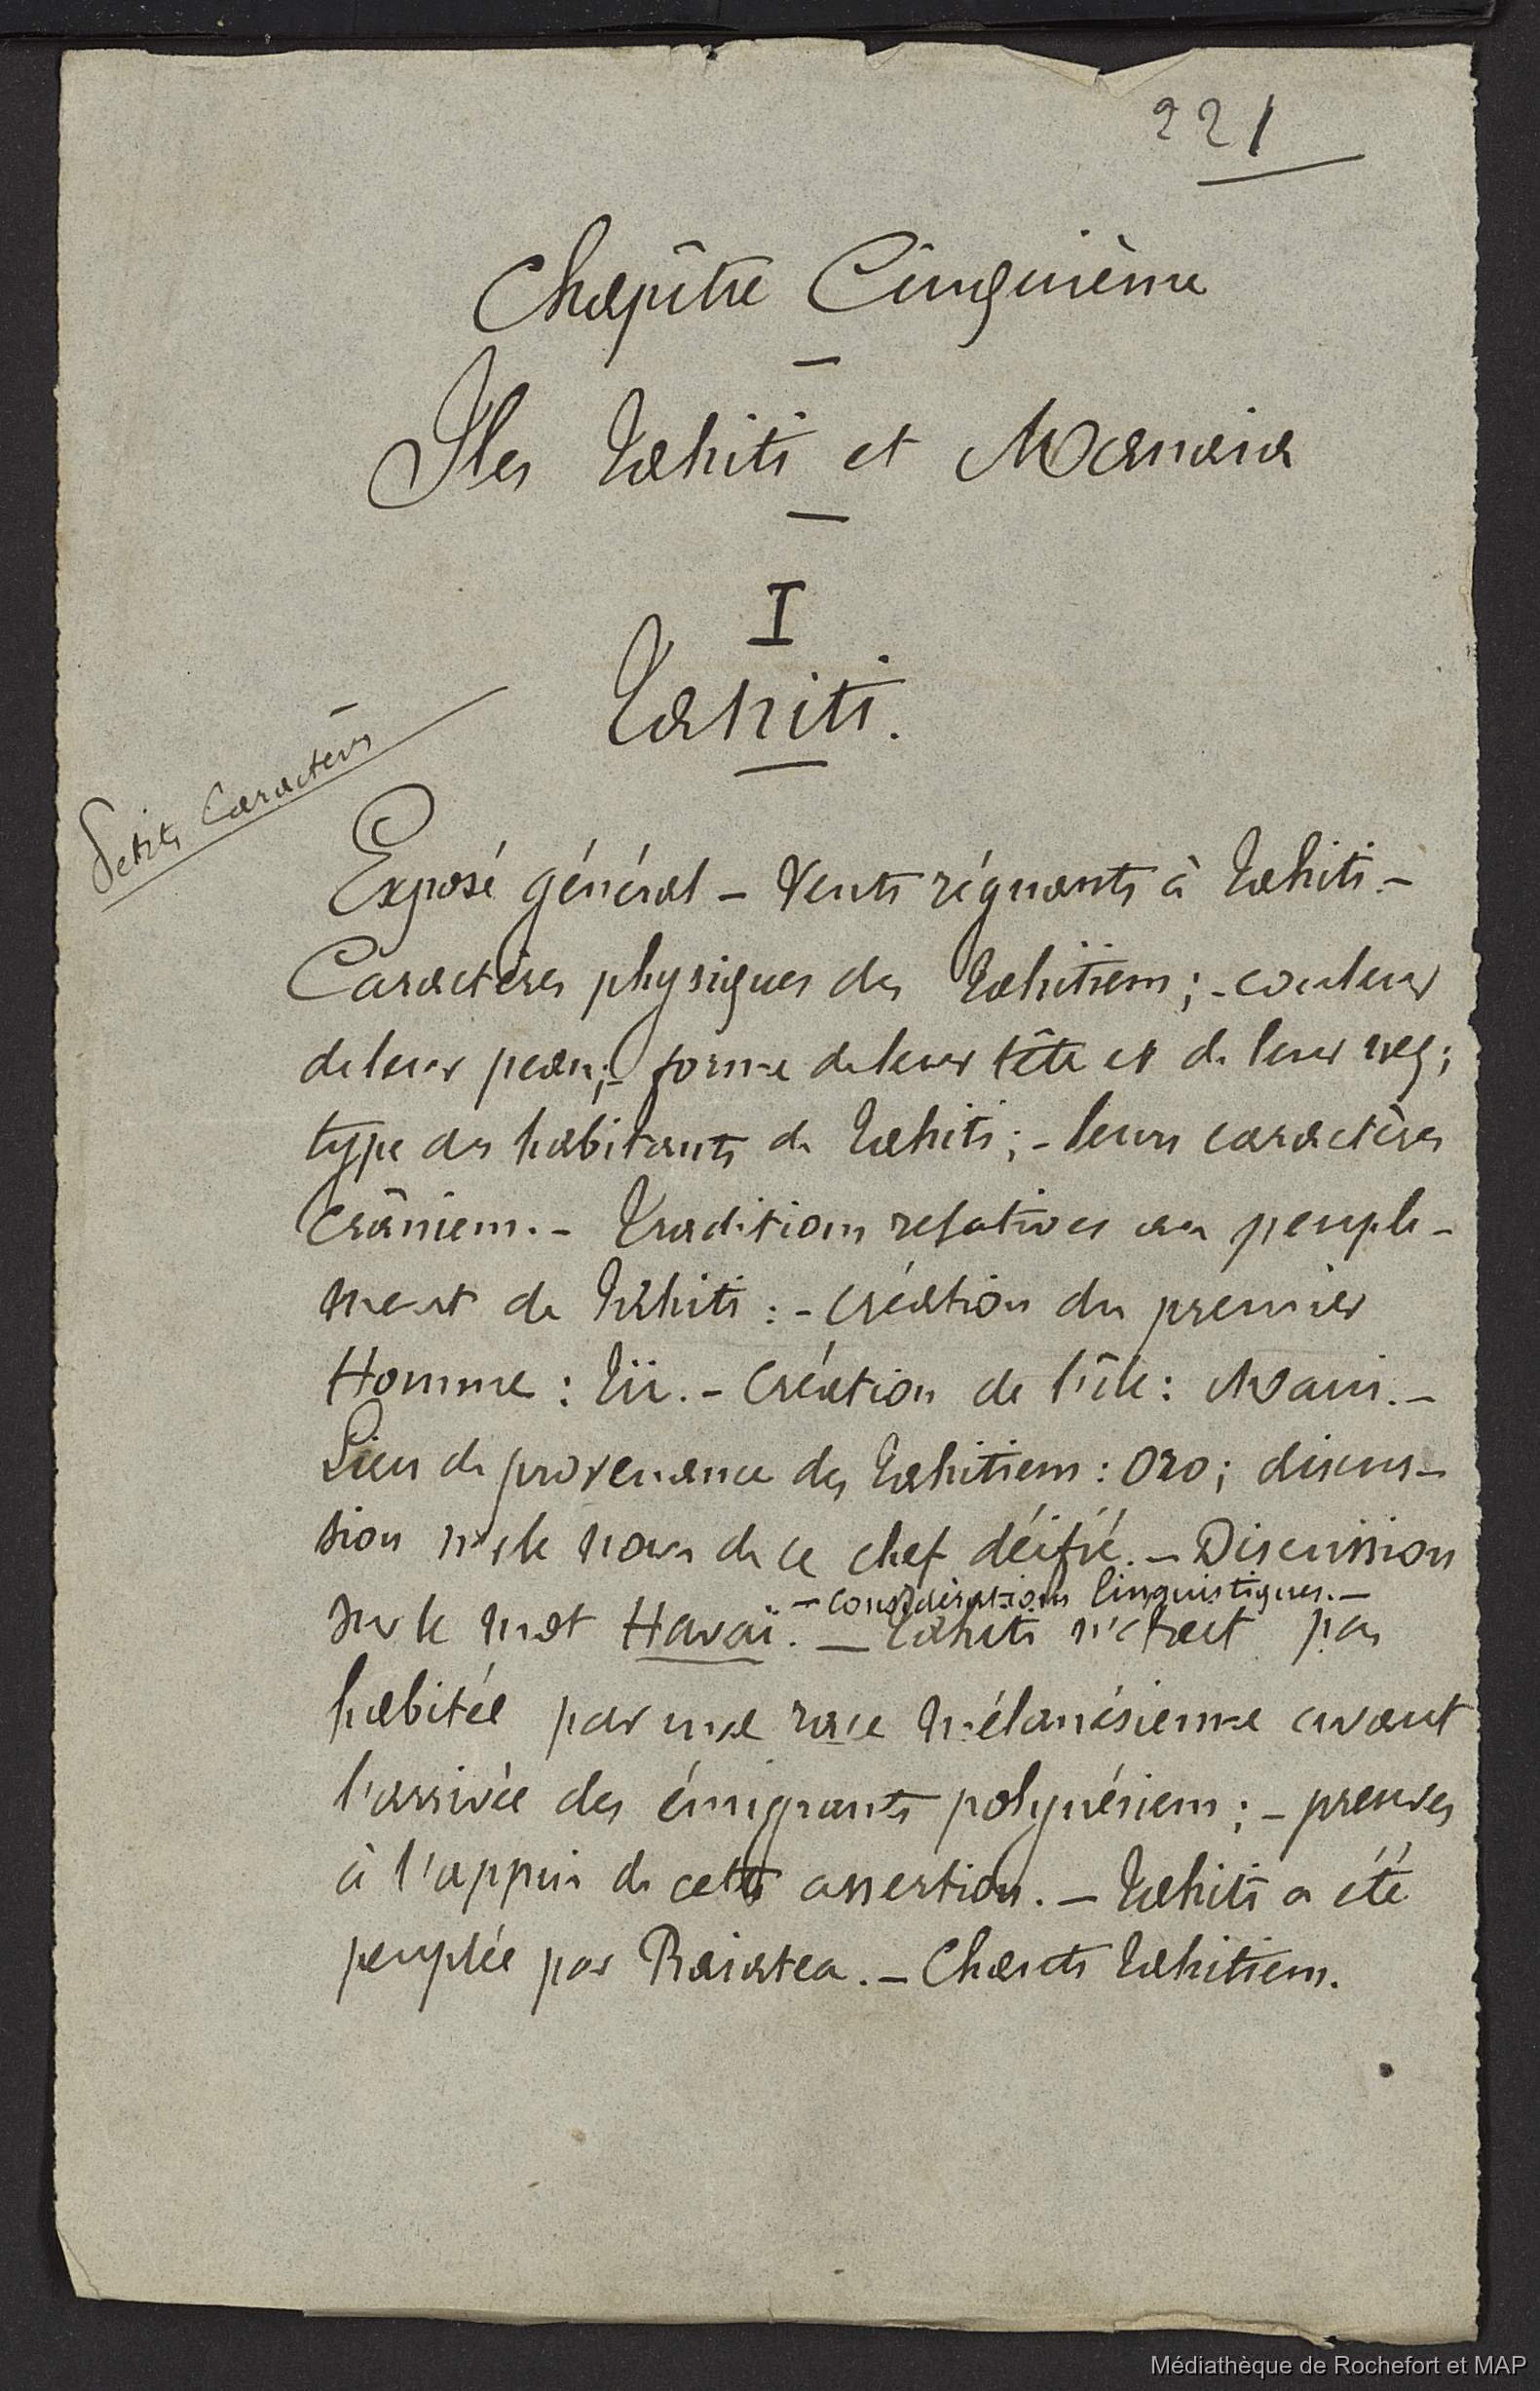 221
Chapître Cinquième
Iles Tahiti et Manaia
I
Tahiti.
Petits Caractères
Exposé général – Vents régnants à Tahiti. –
Caractères physiques des Tahitiens; – couleur
de leur peau; – forme de leur tête et de leur nez;
type des habitants de Tahiti; – leurs caractères
crâniens. – Traditions relatives au peuple-
ment de Tahiti : – Création du premier
Homme : Tii. – Création de l'île : Maui. –
Lieu de provenance des Tahitiens : Oro; discus-
sion sur le nom de ce chef déifié. – Discussion
– Considérations linguistiques. –
sur le mot Havaï. – Tahiti n'était pas
habitée par une race mélanésienne avant
l'arrivée des émigrants polynésiens; – preuves
à l'appui de cette assertion. – Tahiti a été
peuplée par Raiatea. – Chants Tahitiens.
Médiathèque de Rochefort et MAP